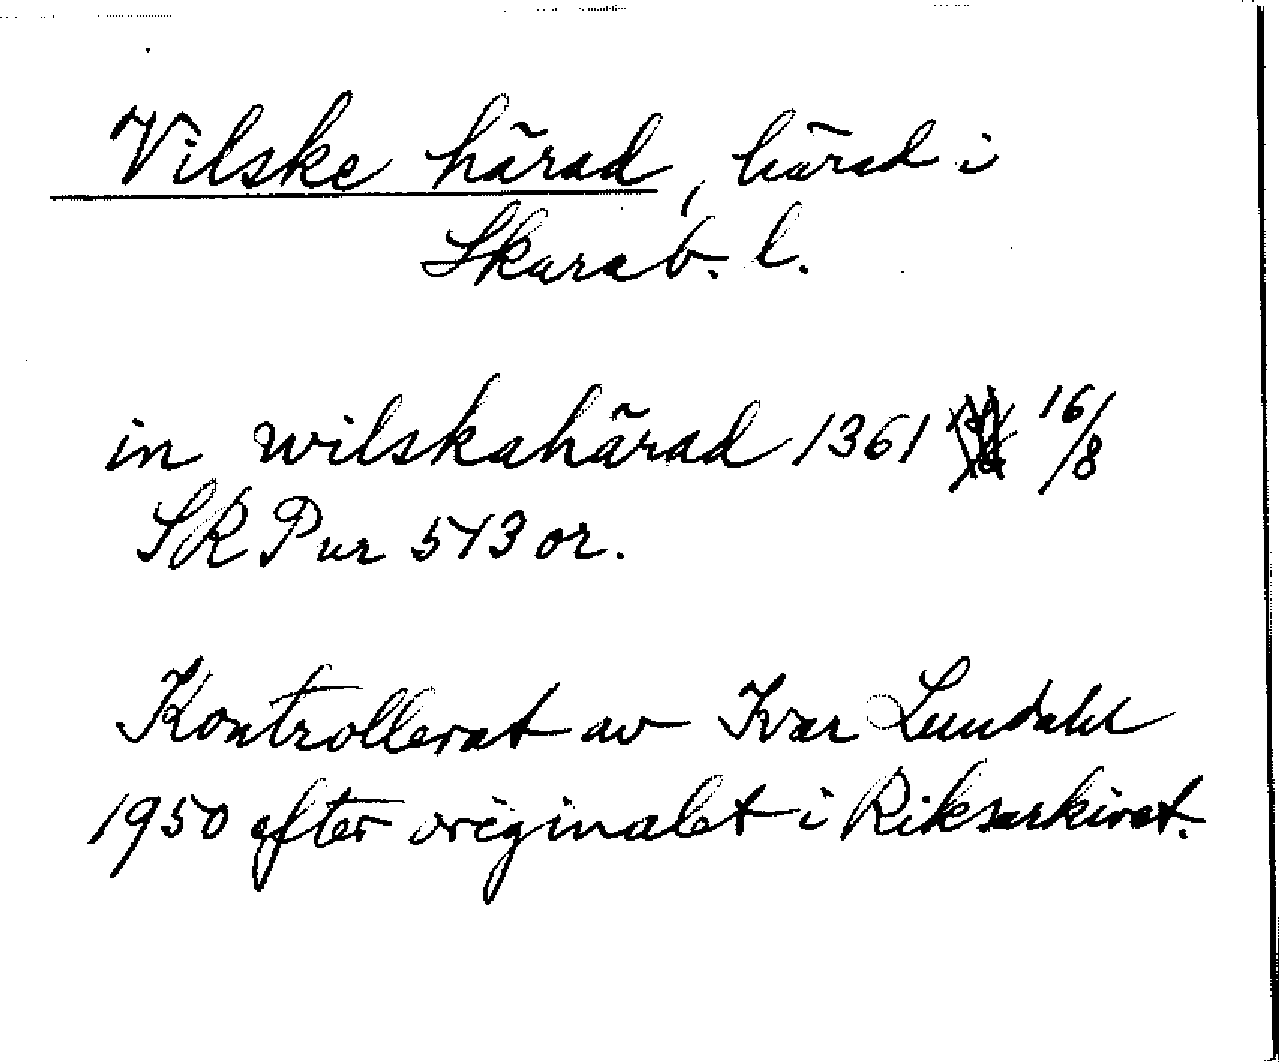 Vilske härad, härad i
Skarab. l.
in wilskahärad 1361 16/8
SR Pur 513 or.
Kontrollerat av Ivar Lundahl
1950 efter originalet i Riksarkivet.